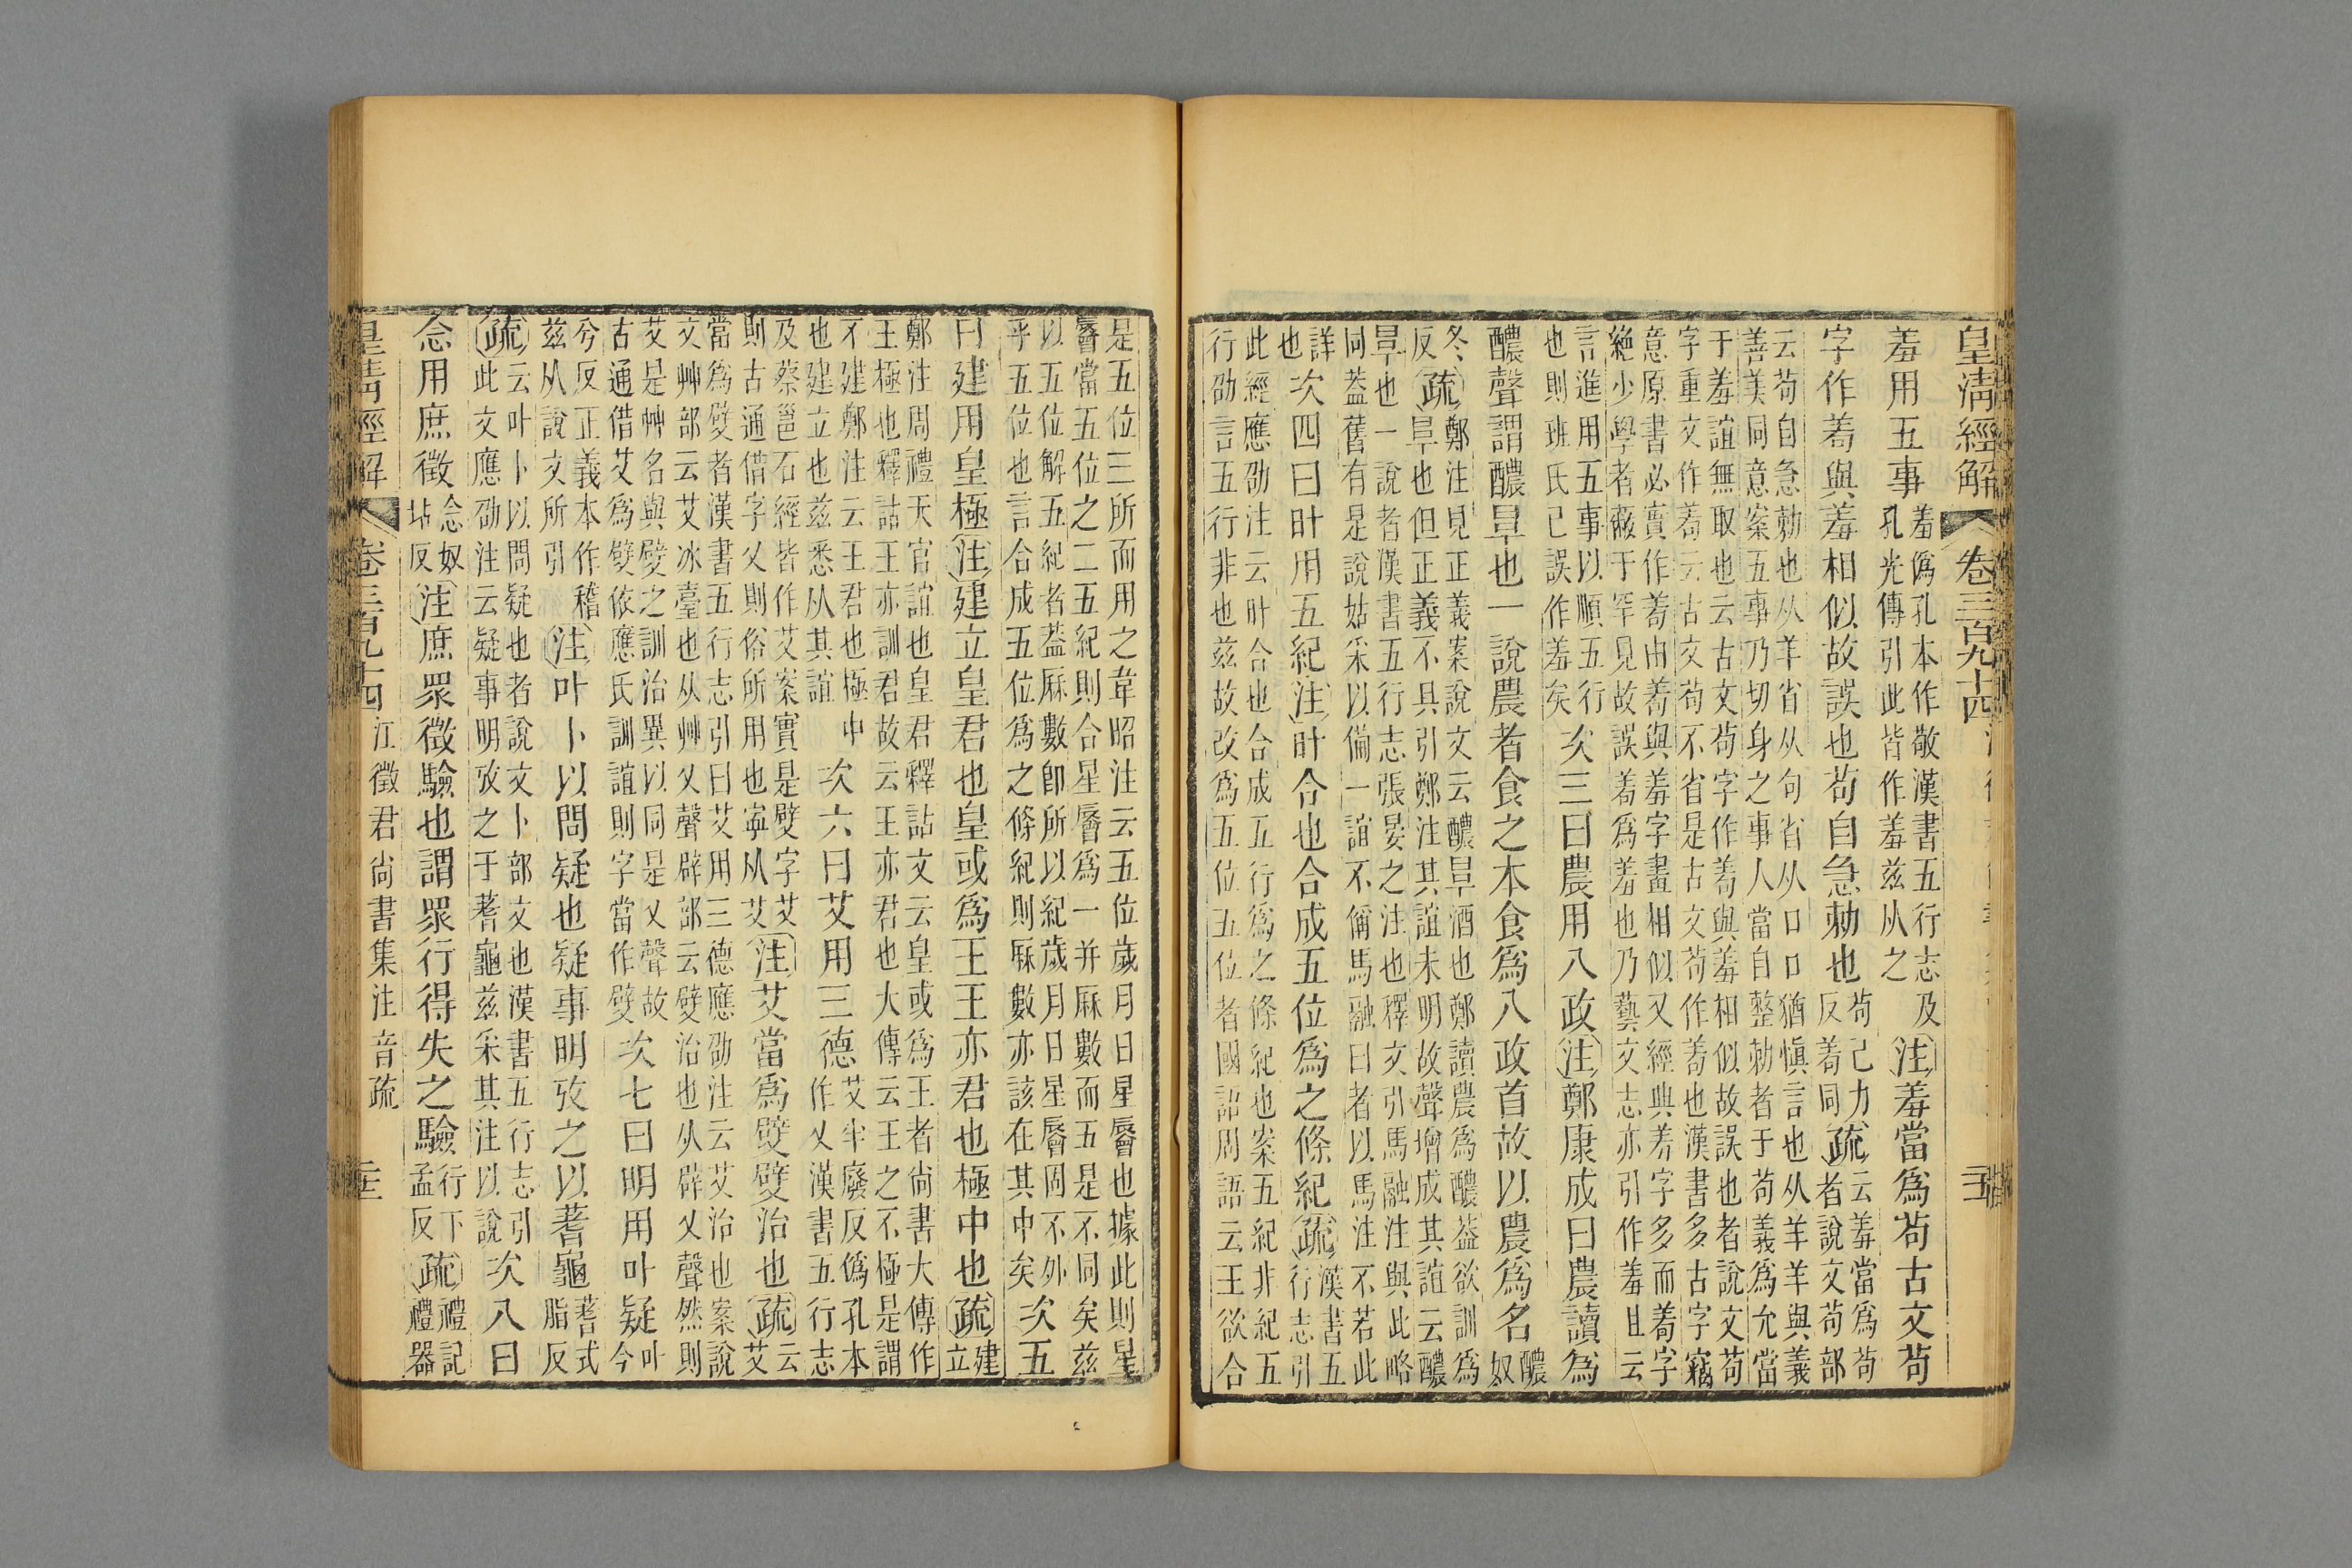 皇淸經解
卷三百九十四
羞用五事
羞僞孔本作敬漢書五行志及
孔光傳引此皆作羞兹从之
注羞當爲茍古文茍
字作與羞相似故誤也茍自急勅也
茍己力
反同
疏
云羞當爲茍
者說文茍部
云茍自急勅也从羊省从勹省从口口猶愼言也从羊羊與義
善美同意案五事乃切身之事人當自整勅者于茍義爲允當
于羞誼無取也云古文茍字作與羞相似故誤也者說文茍
字重文作云古文茍不省是古文茍作也漢書多古字竊
意原書必實作由與羞字畫相似又經典羞字多而字
絶少學者蔽于罕見故誤爲羞也乃藝文志亦引作羞且云
言進用五事以順五行
也則班氏已誤作羞矣
次三曰農用八政注鄭康成曰農讀爲
醲聲謂醲㫗也一說農者食之本食爲八政首故以農爲名
醲
奴
冬
反
疏
鄭注見正義案說文云醲㫗酒也鄭讀農爲醲葢欲訓爲
㫗也但正義不具引鄭注其誼未明故聲增成其誼云醲
㫗也一說者漢書五行志張晏之注也釋文引馬融注與此略
同葢舊有是說姑采以僃一誼不偁馬融曰者以馬注不若此
詳
也
次四曰旪用五紀注旪合也合成五位爲之條紀疏
漢書五
行志引
此經應劭注云旪合也合成五行爲之條紀也案五紀非紀五
行劭言五行非也兹故改爲五位五位者國語周語云王欲合
是五位三所而用之韋昭注云五位歲月日星㫳也據此則星
㫳當五位之二五紀則合星㫳爲一并厤數而五是不同矣兹
以五位解五紀者葢厤數卽所以紀歲月日星㫳固不外
乎五位也言合成五位爲之條紀則厤數亦該在其中矣
次五
曰建用皇極注建立皇君也皇或爲王王亦君也極中也疏
建
立
鄭注周禮天官誼也皇君釋詁文云皇或爲王者尙書大傳作
王極也釋詁王亦訓君故云王亦君也大傳云王之不極是謂
不建鄭注云王君也極中
也建立也兹悉从其誼
次六曰艾用三德
艾半廢反僞孔本
作乂漢書五行志
及蔡邕石經皆作艾案實是嬖字艾
則古通借字乂則俗所用也寧从艾
注艾當爲嬖嬖治也疏
云
艾
當爲嬖者漢書五行志引曰艾用三德應劭注云艾治也案說
文艸部云艾冰臺也从艸乂聲辟部云嬖治也从辟乂聲然則
艾是艸名與嬖之訓治異以同是乂聲故
古通借艾爲嬖依應氏訓誼則字當作嬖
次七曰明用叶疑
叶
今
兮反正義本作稽
兹从說文所引
注叶卜以問疑也疑事明攷之以蓍龜
蓍式
脂反
疏
云叶卜以問疑也者說文卜部文也漢書五行志引
此文應劭注云疑事明攷之于蓍龜兹采其注以說
次八曰
念用庶徵
念奴
坫反
注庶眾徵驗也謂眾行得失之驗
行下
孟反
疏
禮記
禮器
皇淸經解
卷三百九十四
江徵君尙書集注音疏